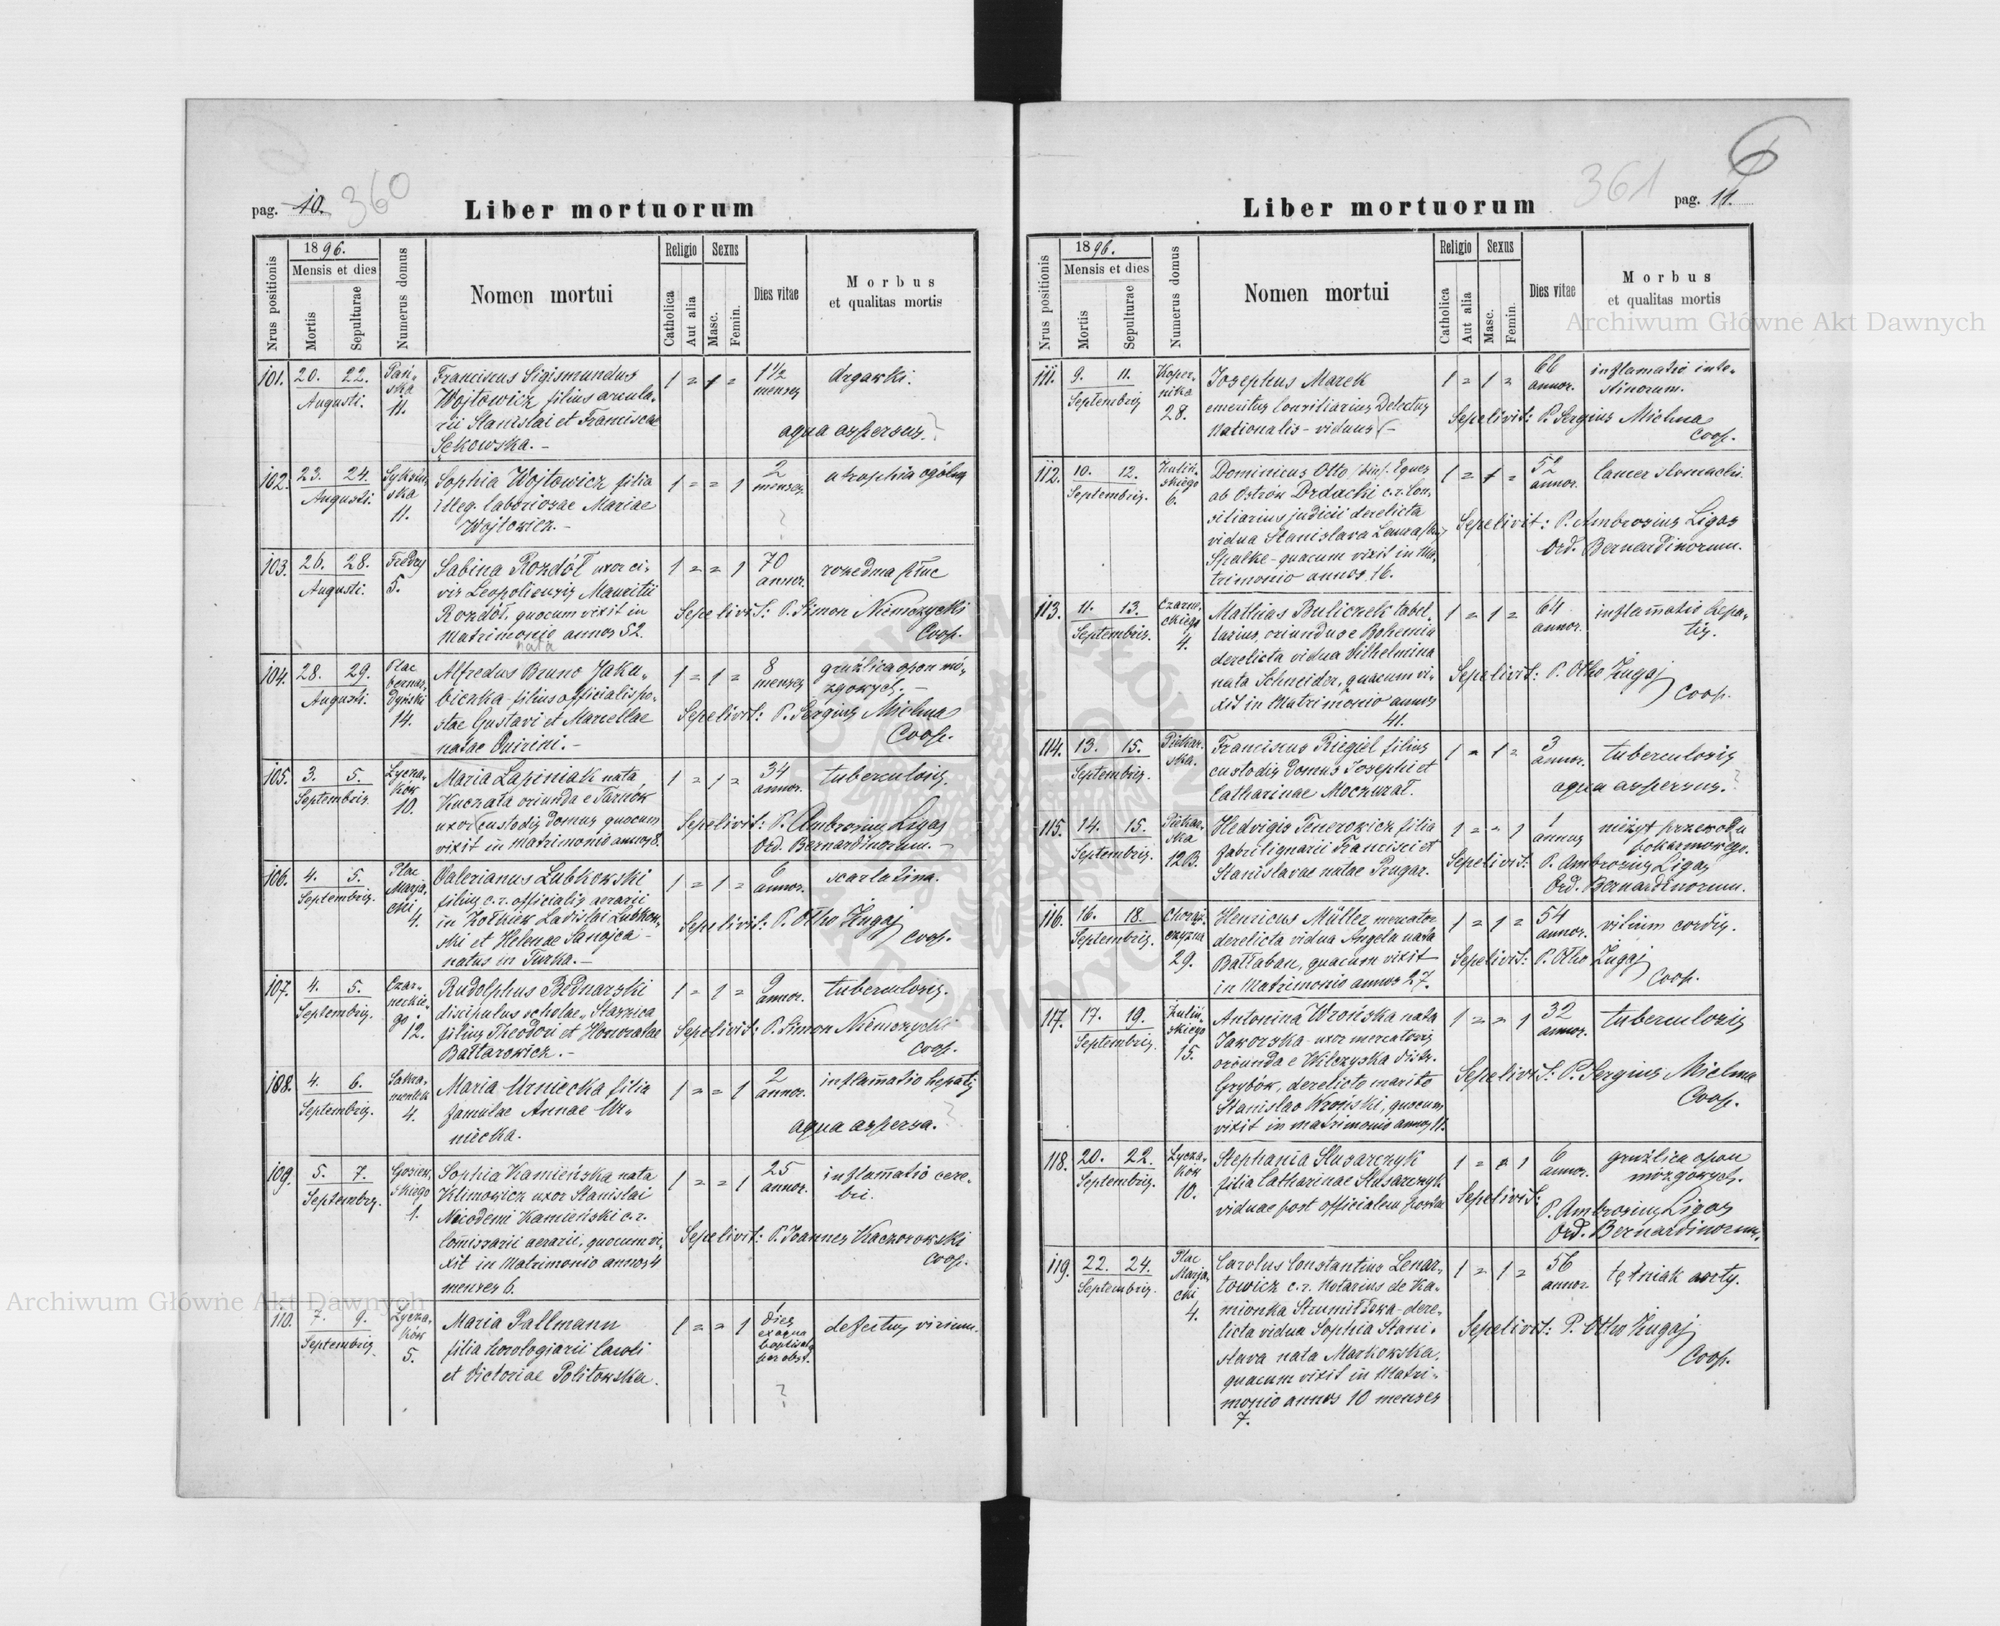 pag. 10. 360
Liber mortuorum
Nrus positionis
1896.
Mensis et dies
Mortis
Sepulturae
Numerus domus
Nomen mortui
Religio
Catholica
Aut alia
Sexus
Masc.
Femin.
Dies vitae
Morbus
et qualitas mortis
101. 20. 22. Augusti. Pań-
ska
11.
Franciscus Sigismundus
Wojtowicz filius arcula-
rii Stanislai et Francisca
Sękowska. -
1 = 1 = 1½
menses
drgawki.
aqua aspersus. ?
102. 23. 24. Augusti. Sykstu-
ska
11.
Sophia Wojtowicz filia
illeg. laboriosae Mariae
Wojtowicz. -
1 = = 1 2
menses
?
atrophia ogólna
103. 26. 28. Augusti. Fredry
5.
Sabina Rozdół uxor ci-
vis Leopoliensis Mauritii
Rozdół, quocum vixit in
Matrimonio annos 52.
1 = = 1 70
annor.
rozedma płuc
Sepelivit: P. Simon Niemczycki
Coop.
104. 28. 29. Augusti. Plac
bernar-
dyński
14.
Alfredus Bruno Jaku-
biczka filius officialis po-
stae Gustavi et Marcellae
natae Quirini. -
1 = 1 = 8
menses
gruźlica opon mó-
zgowych. -
Sepelivit: P. Sergius Mielma
Coop.
105. 3. 5. Septembris. Łycza-
ków
10.
nata
Maria Łapiniak nata
oriunda e Tarnów
uxor custodis domus quocum
vixit in Matrimonio annos 8.
1 = 1 = 34
annor.
tuberculosis.
Sepelivit: P. Ambrosius Ligas
Ord. Bernardinorum. -
106. 4. 5. Septembris. Plac
Marja-
cki
4.
Valerianus Lubkowski
filius c. r. officialis aerarii
in Żołkiew Ladislai Lubkow-
ski et Helenae Sanojca -
natus in Turka. -
1 = 1 = 6
annor.
scarlatina.
Sepelivit: P. Otho Żugaj
Coop.
107. 4. 5. Septembris. Czar-
neckie-
go
12.
Rudolphus Bednarski
discipulus scholae
filius Theodori et Honoratae
Bałtarowicz. -
1 = 1 = 9
annor.
tuberculosis.
Sepelivit: P. Simon Niemczycki
Coop.
108. 4. 6. Septembris. Sakra-
mentek
4.
Maria Urniecka filia
famulae Annae Ur-
niecka.
1 = = 1 2
annor.
inflammatio hepatis
aqua aspersa. ?
109. 5. 7. Septembris.
1.
Sophia Kamieńska nata
Klimowicz uxor Stanislai
Nicodemi Kamieński c. r.
Comissarii aerarii, quocum vi-
xit in Matrimonio annos 4
menses 6.
1 = = 1 25
annor.
inflammatio cere-
bri.
Sepelivit: P. Joannes Kaczorowski
Coop.
110. 7. 9. Septembris. Łycza-
ków
5.
Maria Pallmann
filia horologiarii Caroli
et Victoriae Politowska.
1 = = 1 1
dies
ex aqua
baptisata
per obst.
?
defectus virium.
6
361 pag. 11.
Liber mortuorum
Nrus positionis
1896.
Mensis et dies
Mortis
Sepulturae
Numerus domus
Nomen mortui
Religio
Catholica
Aut alia
Sexus
Masc.
Femin.
Dies vitae
Morbus
et qualitas mortis
111. 9. 11. Septembris Koper-
nika
28.
Josephus Marek
emeritus Consiliarius Delectus
Nationalis - viduus -
1 = 1 = 66
annor.
inflamatio inte-
stinorum.
Sepelivit: P. Sergius Mielma
Coop.
112. 10. 12. Septembris. Kuliń-
skiego
6.
Dominicus Otto Eques
ab Ostrów Drdacki c. r. Con-
siliarius judicii derelicta
vidua Stanislava Leura
Spalke - quacum vixit in Ma-
trimonio annos 16.
1 = 1 = 52
annor.
Cancer stomachi.
Sepelivit: P. Ambrosius Ligas
Ord. Bernardinorum.
113. 11. 13. Septembris. Czarne-
ckiego
4.
Mathias Buliczek tabel-
larius, oriundus e Bohemia
derelicta vidua Vilhelmina
nata Schneider, quacum vi-
xit in Matrimonio annos
41.
1 = 1 = 64
annor.
inflammatio hepa-
tis.
Sepelivit: P. Otho Żugaj
Coop.
114. 13. 15. Septembris. Piekar-
ska.
Franciscus Priegiel filius
custodis domus Josephi et
Catharinae Moczurat.
1 = 1 = 3
annor.
tuberculosis
aqua aspersus. ?
115. 14. 15. Septembris. Piekar-
ska
12B.
Hedvigis Tenerowicz filia
fabri lignarii Francisci et
Stanislavae natae Prugar.
1 = = 1 1
annus
nieżyt przewodu
pokarmowego.
Sepelivit: P. Ambrosius Ligas
Ord. Bernardinorum.
116. 16. 18. Septembris. Chorąż-
czyzna
29.
Henricus Müller mercator
derelicta vidua Angela nata
Bałłaban, quacum vixit
in Matrimonio annos 27.
1 = 1 = 54
annor.
vitium cordis.
Sepelivit: P. Otho Żugaj
Coop.
117. 17. 19. Septembris. Kuliń-
skiego
15.
Antonina Wrońska nata
Jaworska uxor mercatoris
oriunda e Wilczyska distr.
Grybów, derelicto marito
Stanislao Wroński, quocum
vixit in matrimonio annos 11.
1 = = 1 32
annor.
tuberculosis
Sepelivit: P. Sergius Mielma
Coop.
118. 20. 22. Septembris. Łycza-
ków
10.
Stephania Slusarczyk
filia Catharinae Slusarczyk
viduae post officialem postae
1 = = 1 6
annor.
gruźlica opon
mózgowych.
Sepelivit:
P. Ambrosius Ligas
Ord. Bernardinorum.
119. 22. 24. Septembris. Plac
Marja-
cki
4.
Carolus Constantius Lenar-
towicz c. r. Notarius de Ka-
mionka Strumiłowa - dere-
licta vidua Sophia Stani-
slava nata Markowska,
quacum vixit in Matri-
monio annos 10 menses
7.
1 = 1 = 56
annor.
tętniak aorty.
Sepelivit: P. Otho Żugaj
Coop.
Archiwum Główne Akt Dawnych
Archiwum Główne Akt Dawnych